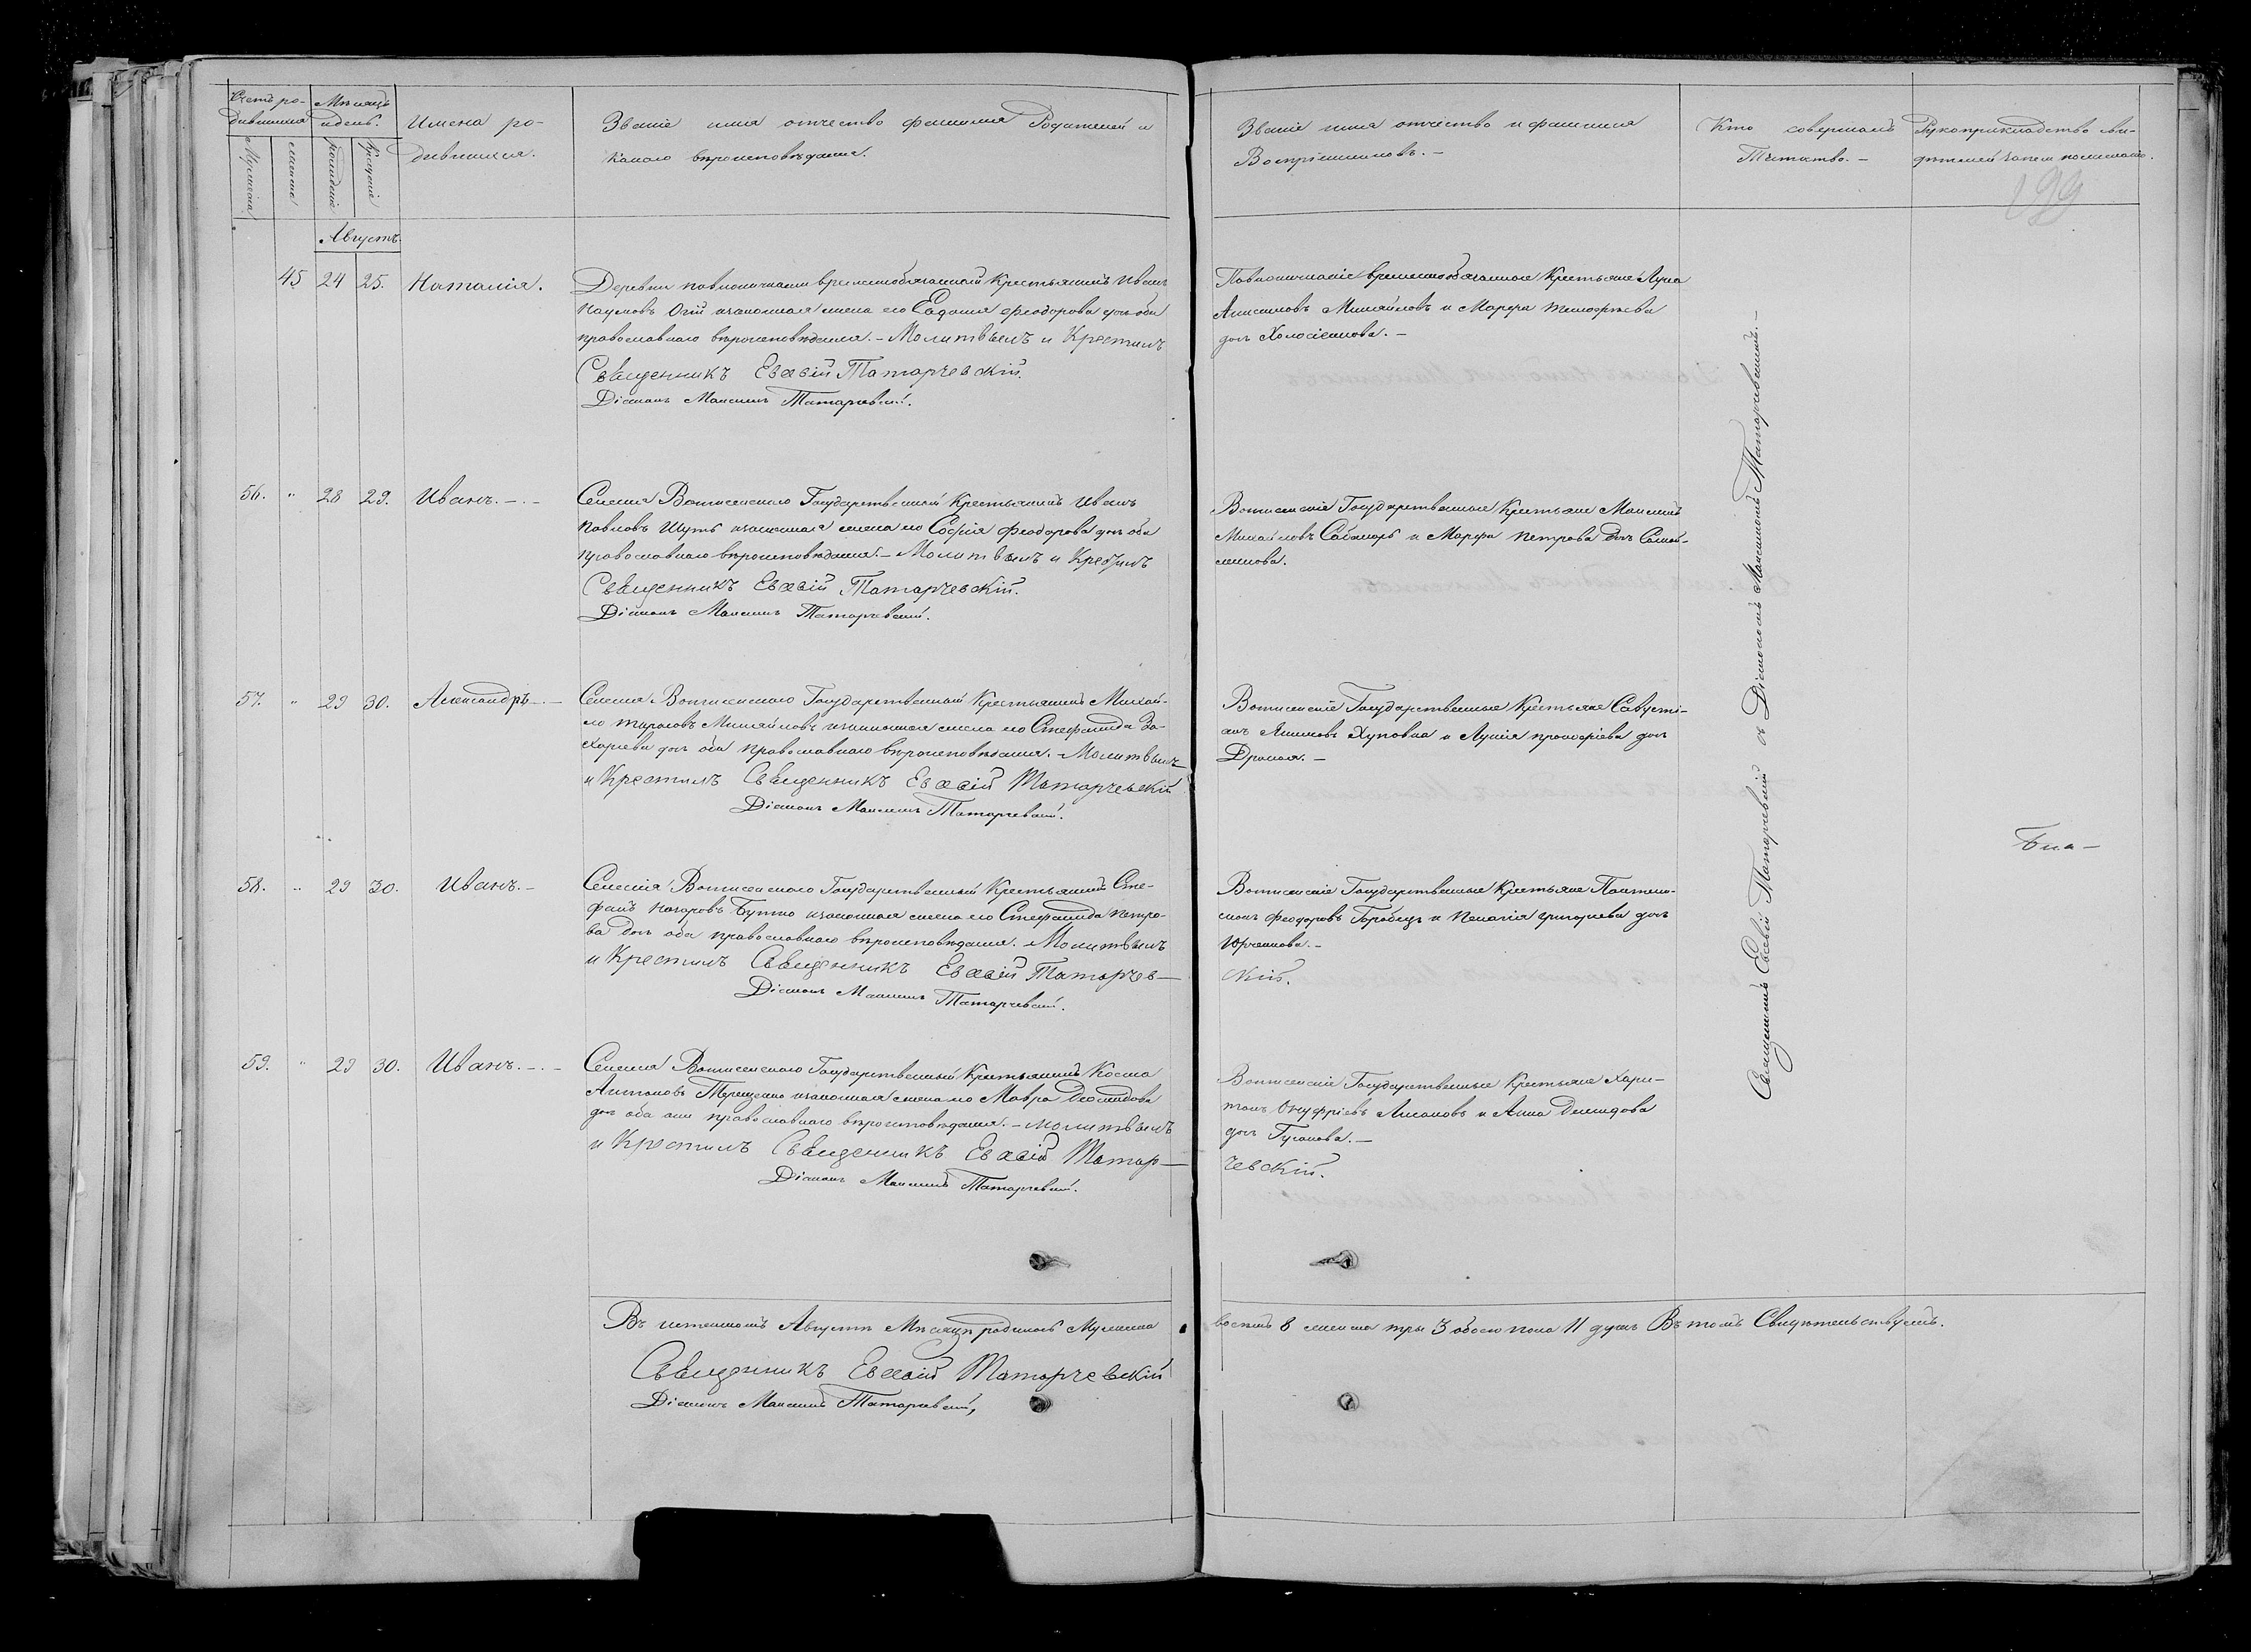 Счетъ ро-
дившихся
Мѣсяцъ
и день.
Имена ро-
дившихся.
Званіе имя отчество фамилія Родителей и
какого вѣроисповѣданія.
Званіе имя отчество и фамилія
Воспріемниковъ. -
Кто совершалъ
Таинство. -
Рукоприкладство сви-
дѣтелей записи по желанію.
Мужеска
женска
рожденіе
крещеніе
199
Августъ.
45 24 25. Наталія.
Деревни временнообязанный Крестьянинъ Иванъ
Наумовъ Огій и законная жена его Евдокія Феодорова дочь оба
православнаго вѣроисповѣданія. - Молитвылъ и Крестилъ
Свіщенникъ Евсевій Татарчевскій.
Діаконъ Максимъ Татарчевскій.
временнообязанные Крестьяне Лука
Анисимовъ Михайловъ и Марфа Тимофѣева
дочь. -
56. " 28 29. Иванъ. - . -
Селенія Вотилевского Государственный Крестьянинъ Иванъ
Павловъ Шутъ и законная жена его Софія Феодорова дочь оба
православнаго вѣроисповѣданія. - Молитвылъ и Крестилъ
Свіщенникъ Евсевій Татарчевскій.
Діаконъ Максимъ Татарчевскій.
Государственные Крестьяне Максимъ
Михайловъ и Марфа Петрова дочь Самой-
ленкова.
57. " 29 30. Александръ - . -
Селенія Государственный Крестьянинъ Михай-
ло Тарасовъ Михайловъ и законная жена его Стефанида За-
харіева дочь оба православнаго вѣроисповѣданія. Молитвылъ
и Крестилъ Свіщенникъ Евсевій Татарчевскій
Діаконъ Максимъ Татарчевскій.
Государственные Крестьяне Савусті-
анъ Якимовъ и Лукія дочь
58. " 29 30. Иванъ. -
Селенія Государственный Крестьянинъ Сте-
фанъ Назаровъ Бутко и законная жена его Стефанида Петро-
ва дочь оба православнаго вѣроисповѣданія. Молитвылъ
и Крестилъ Свіщенникъ Евсевій Татарчев-
Діаконъ Максимъ Татарчевскій.
Государственные Крестьяне Пантели-
монъ Феодоровъ Горобецъ и Пелагія Григоріева дочь
Юрченкова. -
скій.
59. " 29 30. Иванъ. - . -
Селенія Государственный Крестьянинъ Косма
Антоновъ Терещенко и законная жена его Мавра Деомидова
дочь оба они православнаго вѣроисповѣданія. - Молитвылъ
и Крестилъ Свіщенникъ Евсевій Татар-
Діаконъ Максимъ Татарчевскій.
Государственные Крестьяне Хари-
тонъ Онуфріевъ и Анна Демидова
дочь. -
чевскій.
Священникъ Евсевій Татарчевскій съ Діакономъ Максимомъ Татарчевскимъ. -
Въ истекшомъ Августѣ Мѣсяцѣ родилось Мужеска
восемь 8 женска три 3 обоего пола 11 душъ Въ томъ Свидѣтельствуемъ.
Свіщенникъ Евсевій Татарчевскій
Діаконъ Максимъ Татарчевскій,